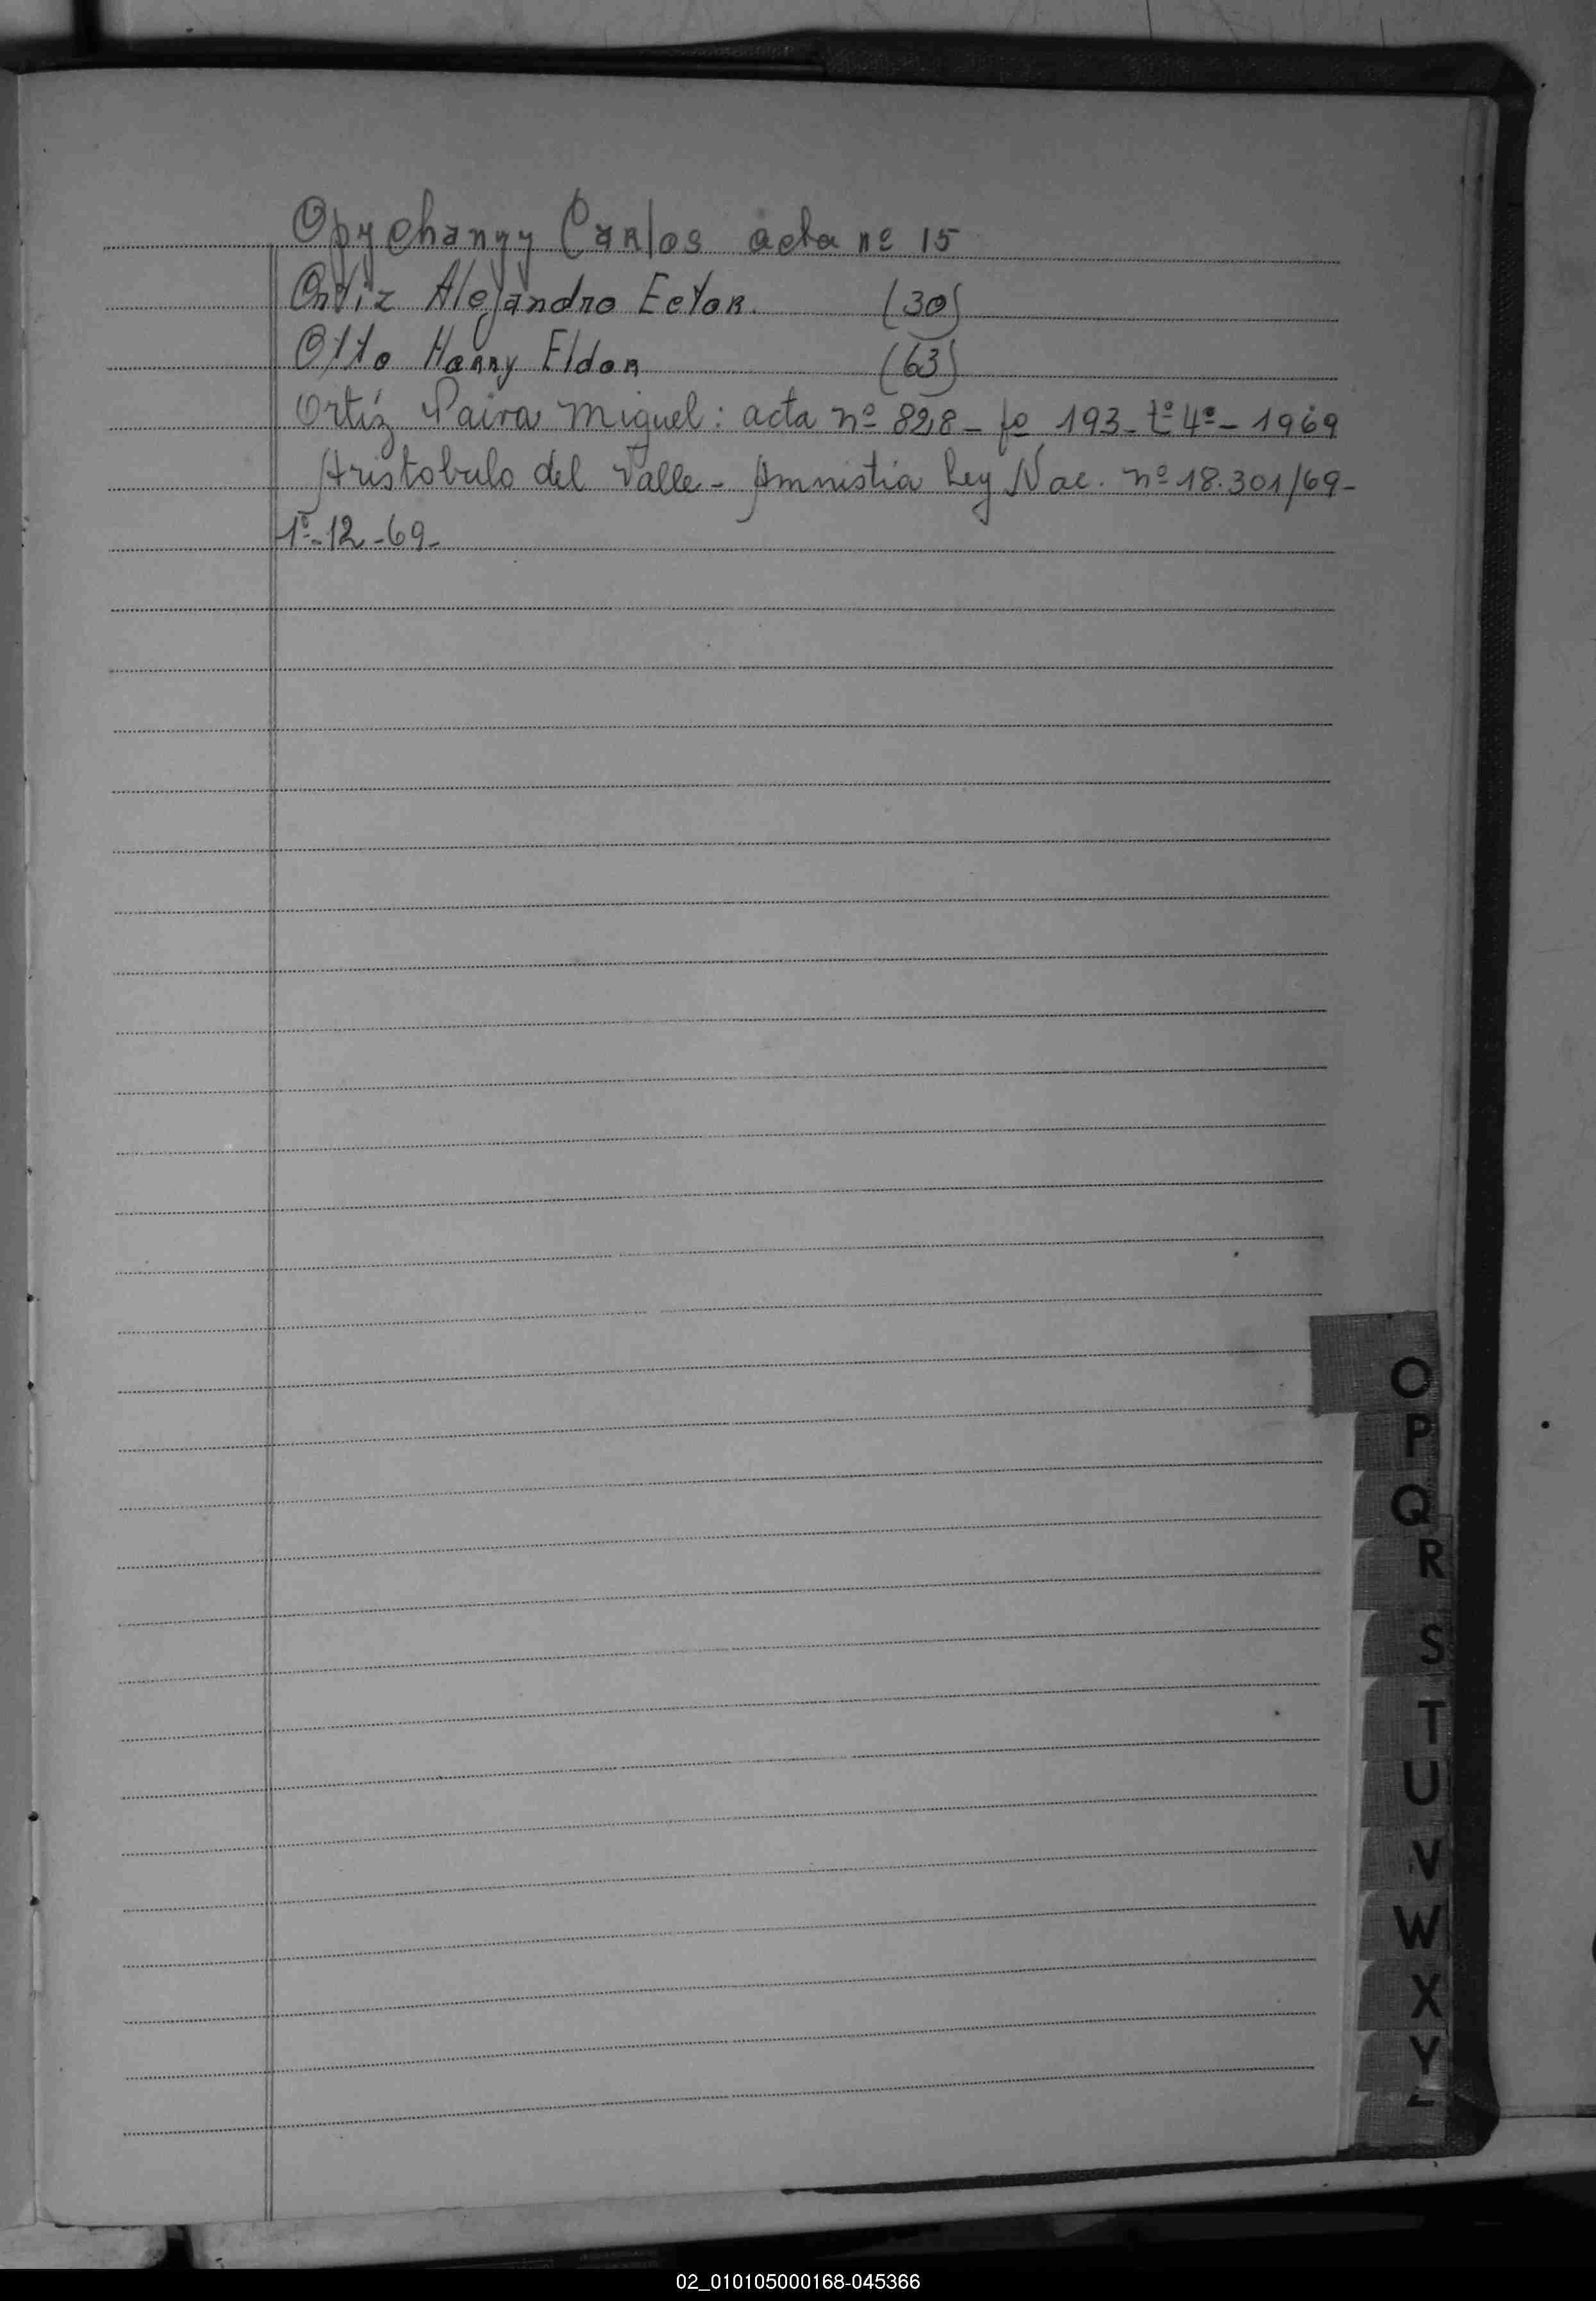 Opychanyy Carlos acta nº 15
Ortiz Alejandro Ector. (30)
Otto Harry Eldor (63)
Ortíz Paiva Miguel: acta nº 828 - fº 193 - tº 4º - 1969
Aristobulo del Valle - Amnistia Ley Nac. nº 18.301/69 -
1º - 12 - 69 -
O
P
Q
R
S
T
U
V
W
X
Y
Z
02_010105000168-045366